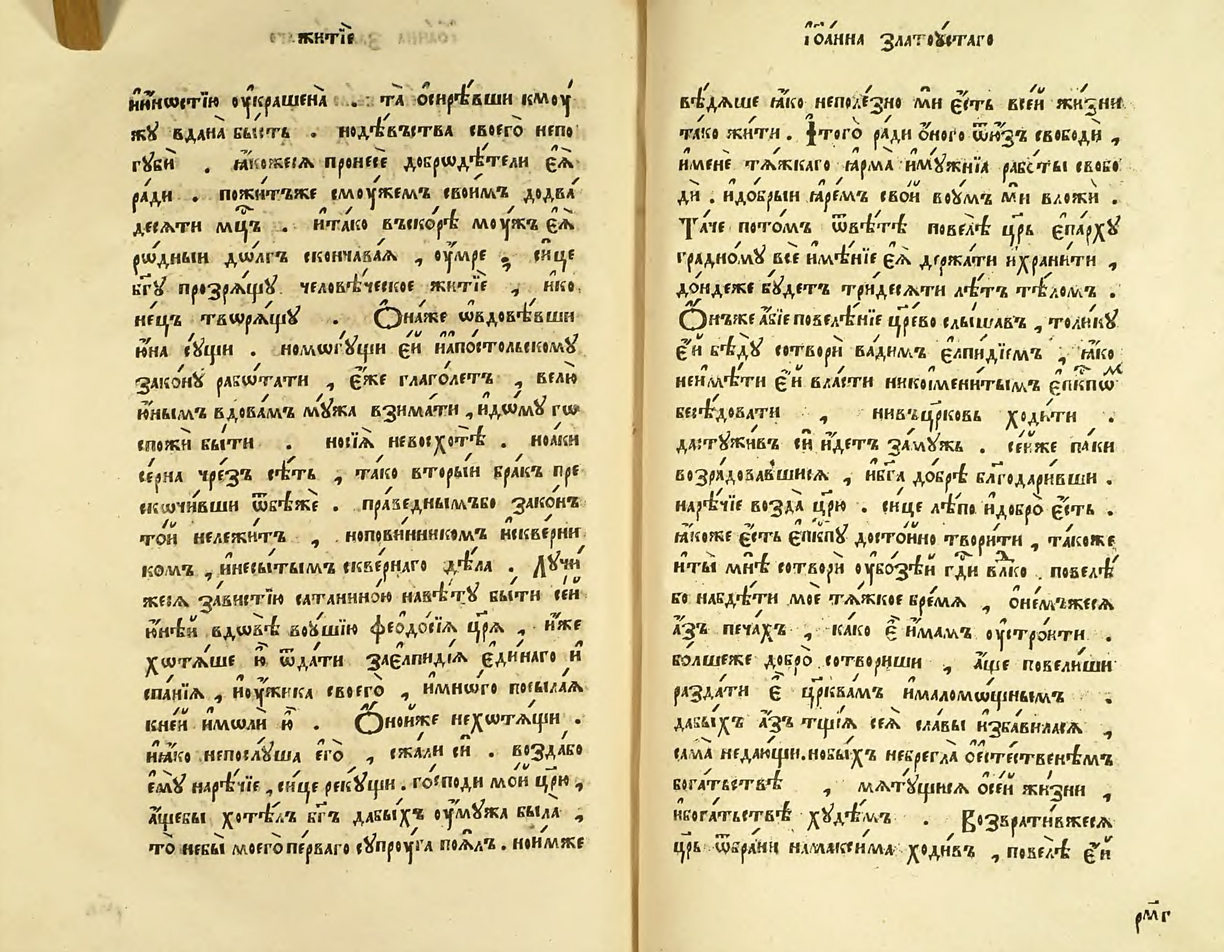 житїе
нїностїю оу҆крашена̀ . та̀ ѻ҆сирѣ́вши кмоу́
жꙋ вдана̀ бы́сть . нодѣ́въства своегѡ̀ непо
гꙋбѝ . ꙗ҆́кожесѧ пронесѐ добрѡдѣ́тели є҆ѧ̀
ра́ди . пожи́тъже смоу́жемъ свои́мъ додва́
десѧти мц҃ъ . и҆та́ко въско́рѣ моу́жъ є҆ѧ̀
рѡ́дныи дѡ́лгъ сконча́ваѧ , оу҆́мре ; си́це
бг҃ꙋ прозрѧ́щꙋ человѣ́ческое житїѐ , и҆ко
не́цъ творѧ́щꙋ . Ѻ҆на́же ѡ҆вдовѣ́вши
ю҆на сꙋ́щи . номѡгꙋ́щи є҆́й и҆а҆по́стольскомꙋ
зако́нꙋ рабѡ́тати , є҆́же глаго́летъ , велю̀
ю҆́нымъ вдова́мъ мꙋ́жа взима́ти , и҆до́мꙋ гѡ
спожѝ бы́ти . носїѧ̀ невосхотѣ̀ . ноа́ки
се́рна чре́зъ сѣ́ть , та́ко вторы́и бра́къ пре
скочи́вши ѿбѣжѐ . пра́веднымъбо зако́нъ
то́й нележи́тъ , нопови́нникомъ и҆скве́рни
комъ , и҆несы́тымъ скве́рнаго дѣ́ла . Лꙋчи́
жесѧ за́вистїю сатанино́ю навѣ́тꙋ бы́ти се́й
ю҆́нѣй вдовѣ̀ воу́шїю феѡдо́сїѧ цр҃ѧ̀ , и҆́же
хотѧ́ше ю҆̀ ѿда́ти заелпи́дїѧ є҆ди́наго и҆
спа́нїѧ , и҆оу́жика своегѡ̀ , и҆мно́го посыла́ѧ
кне́й и҆моли̑ ю҆̀ . Ѻ҆но́йже нехотѧ́щи .
и҆ꙗ҆́ко непослꙋ́ша є҆гѡ̀ , сжа́ли сѝ . возда́бо
є҆мꙋ̀ нарѣ́чїе , си́це рекꙋ́щи . го́споди мо́й цр҃ю̀ ,
а҆́щебы хотѣ́лъ бг҃ъ дабы́хъ оу҆мꙋ́жа была̀ ,
то̀ небы̀ моегѡ̀ пе́рваго сꙋпроу́га поѧ́лъ . нои́мже
І҆ѡ҆а́нна златоу́стаго
вѣ́дѧше ꙗ҆́ко неполе́зно мѝ є҆́сть все́й жи́зни
та́ко жи́ти . І҆того̀ ра́ди ѻ҆́ного ѿю҆́зъ свободѝ ,
и҆́мене тѧ́жкаго ꙗ҆рма̀ и҆мꙋ́жнїѧ рабѡ́ты свобо
дѝ . и҆до́брыи ꙗ҆ре́мъ сво́й воу́мъ мѝ вложѝ .
Та́че пото́мъ ѿвѣ́тѣ повелѣ̀ цр҃ь є҆па́рхꙋ
градно́мꙋ всѐ и҆мѣ́нїе є҆ѧ̀ держа́ти и҆храни́ти ,
до́ндеже бꙋ́детъ три́десѧти лѣ́тъ тѣ́ломъ .
Ѻ҆нъже а҆́бїе повелѣ́нїе цр҃ево слы́шавъ , толи́кꙋ
є҆́й бѣ́дꙋ сотворѝ вади́мъ є҆лпи́дїемъ , ꙗ҆́ко
неимѣ́ти є҆́й вла́сти никоимени́тымъ є҆пкпѡ́м
бесѣ́довати , нивъцр҃ковь ходи́ти .
да́тꙋживъ сѝ и҆́детъ за́мꙋжь . се́йже па́ки
возра́довавшисѧ , и҆бг҃а до́брѣ блгодари́вши .
нарѣ́чїе возда̀ цр҃ю . си́це лѣ́по и҆добро̀ є҆́сть .
ꙗ҆́коже є҆́сть є҆пкпꙋ досто́йно твори́ти , та́коже
и҆ты̀ мнѣ̀ сотворѝ оу҆бо́зѣй гд҃и влк҃о . повелѣ́
бо набдѣ́ти моѐ тѧ́жкое бре́мѧ , ѻ҆не́мъжесѧ
а҆́зъ печа́хъ , ка́ко є҆̀ и҆́мамъ оу҆стро́ити .
бо́лшеже добро̀ сотвори́ши , а҆́ще повели́ши
разда́ти є҆̀ цр҃квамъ и҆маломо́щнымъ .
дабы́хъ а҆́зъ тщїѧ̀ сеѧ̀ сла́вы и҆зба́виласѧ ,
сама̀ недаю́щи . нобы́хъ небрегла̀ ѻ҆есте́ственѣмъ
бога́тьствѣ , мѧтꙋ́щисѧ ѻ҆се́й жи́зни ,
и҆бога́тьствѣ хꙋдѣ́мъ . Возврати́вжесѧ
цр҃ь ѿбра́ни нама́ксима ходи́въ , повелѣ̀ є҆́й
рм҃г